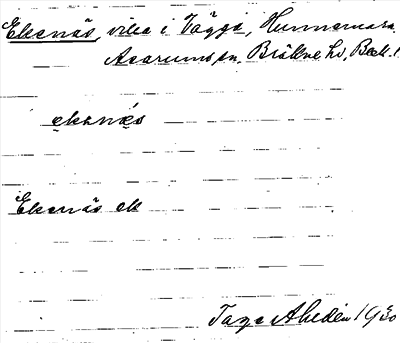 Ekenäs, villa i Täggö, Hunnemara,
Asarums sn, Bräkne hd, Blek. l.
ekenäs
Ekenäs ek
Tage Ahldén 1930